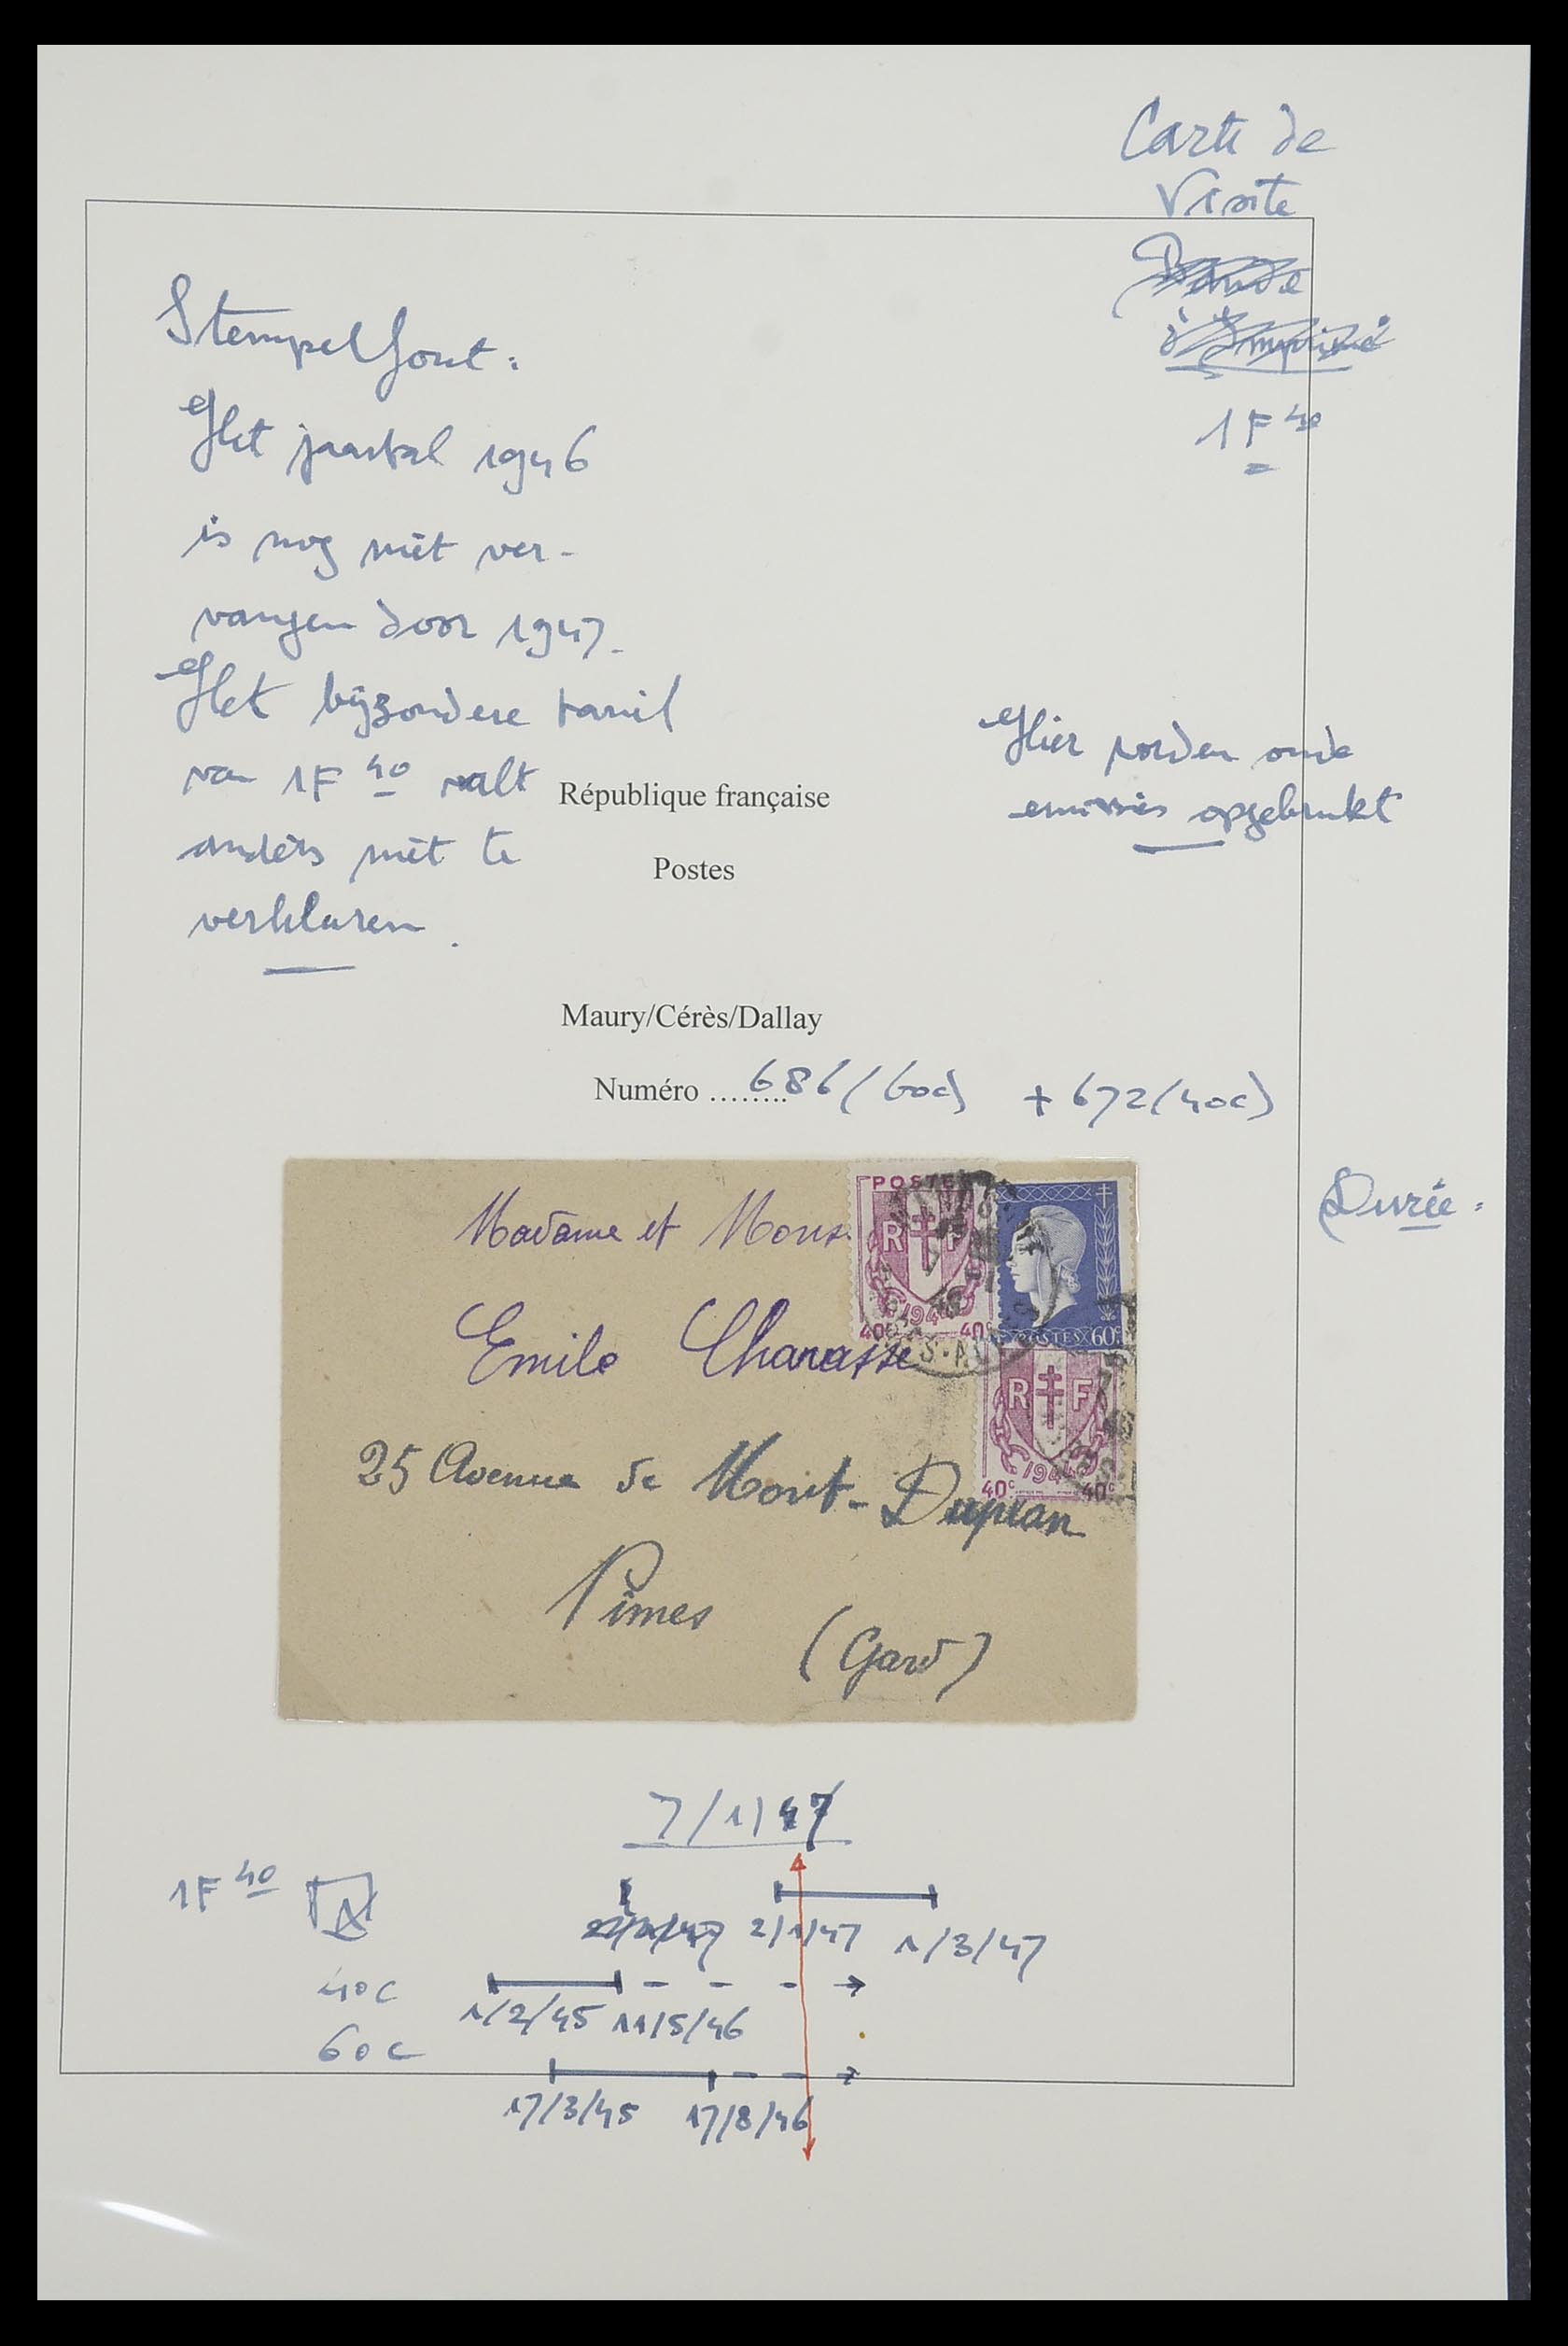 Carte de
Visite
1F 40
Stempelfout:
Het jaartal 1946
is nog niet ver-
vangen door 1947.
Het bijzondere tarief
van 1F 40 valt
anders niet te
verklaren.
Hier worden oude
emissies opgebruikt
République française
Postes
Maury/Cérès/Dallay
Numéro ........ 686 (60c) + 672 (40c)
Durée:
Madame et Mons.
Emile Chanasse
25 Avenue de Mont-Duplan
Nîmes
(Gard)
POSTES
RF
1944
40c 40c
POSTES 60c
RF
1944
40c 40c
7/1/47
1F 40
2/1/47 1/3/47
40c
1/2/45 11/5/46
60c
17/3/45 17/8/46